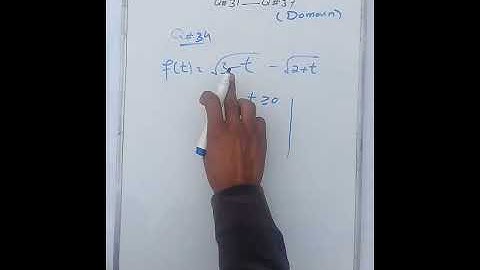 Q#31 — Q#37
(Domain)
Q#34
f(t) = √3 t - √2+t
t ≥ 0